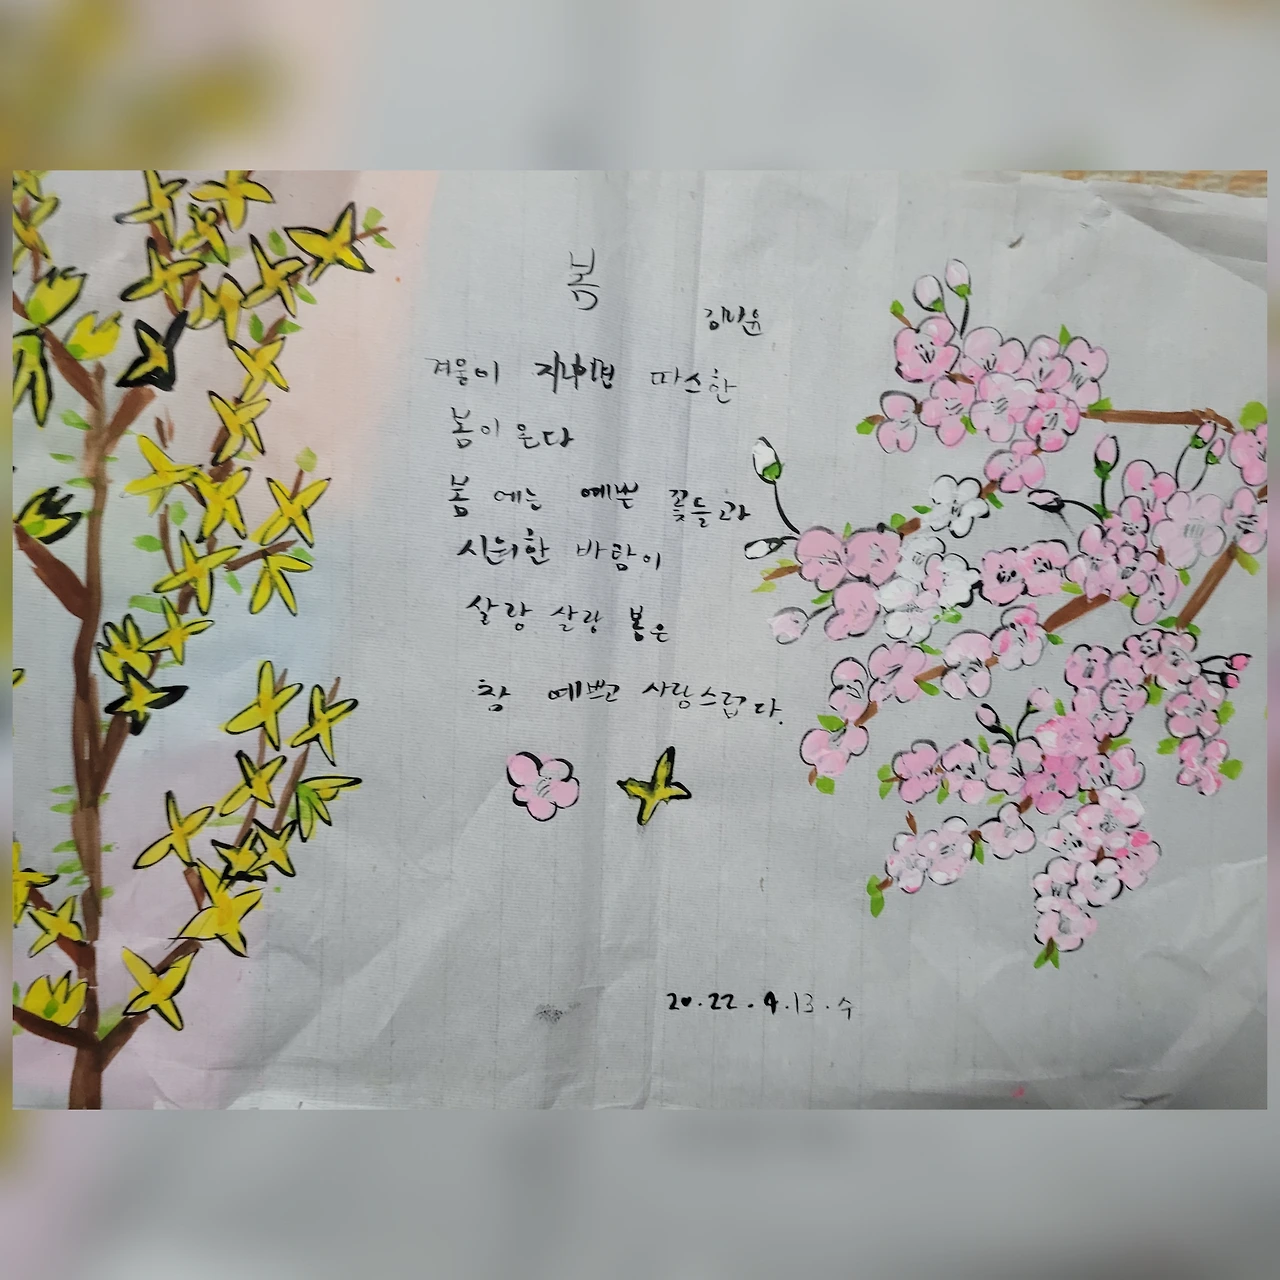 봄
겨울이 지나면 따스한
봄이 온다
봄 에는 예쁜 꽃들과
시원한 바람이
살랑 살랑 봄은
참 예쁘고 사랑스럽다.
20.22.4.13.수